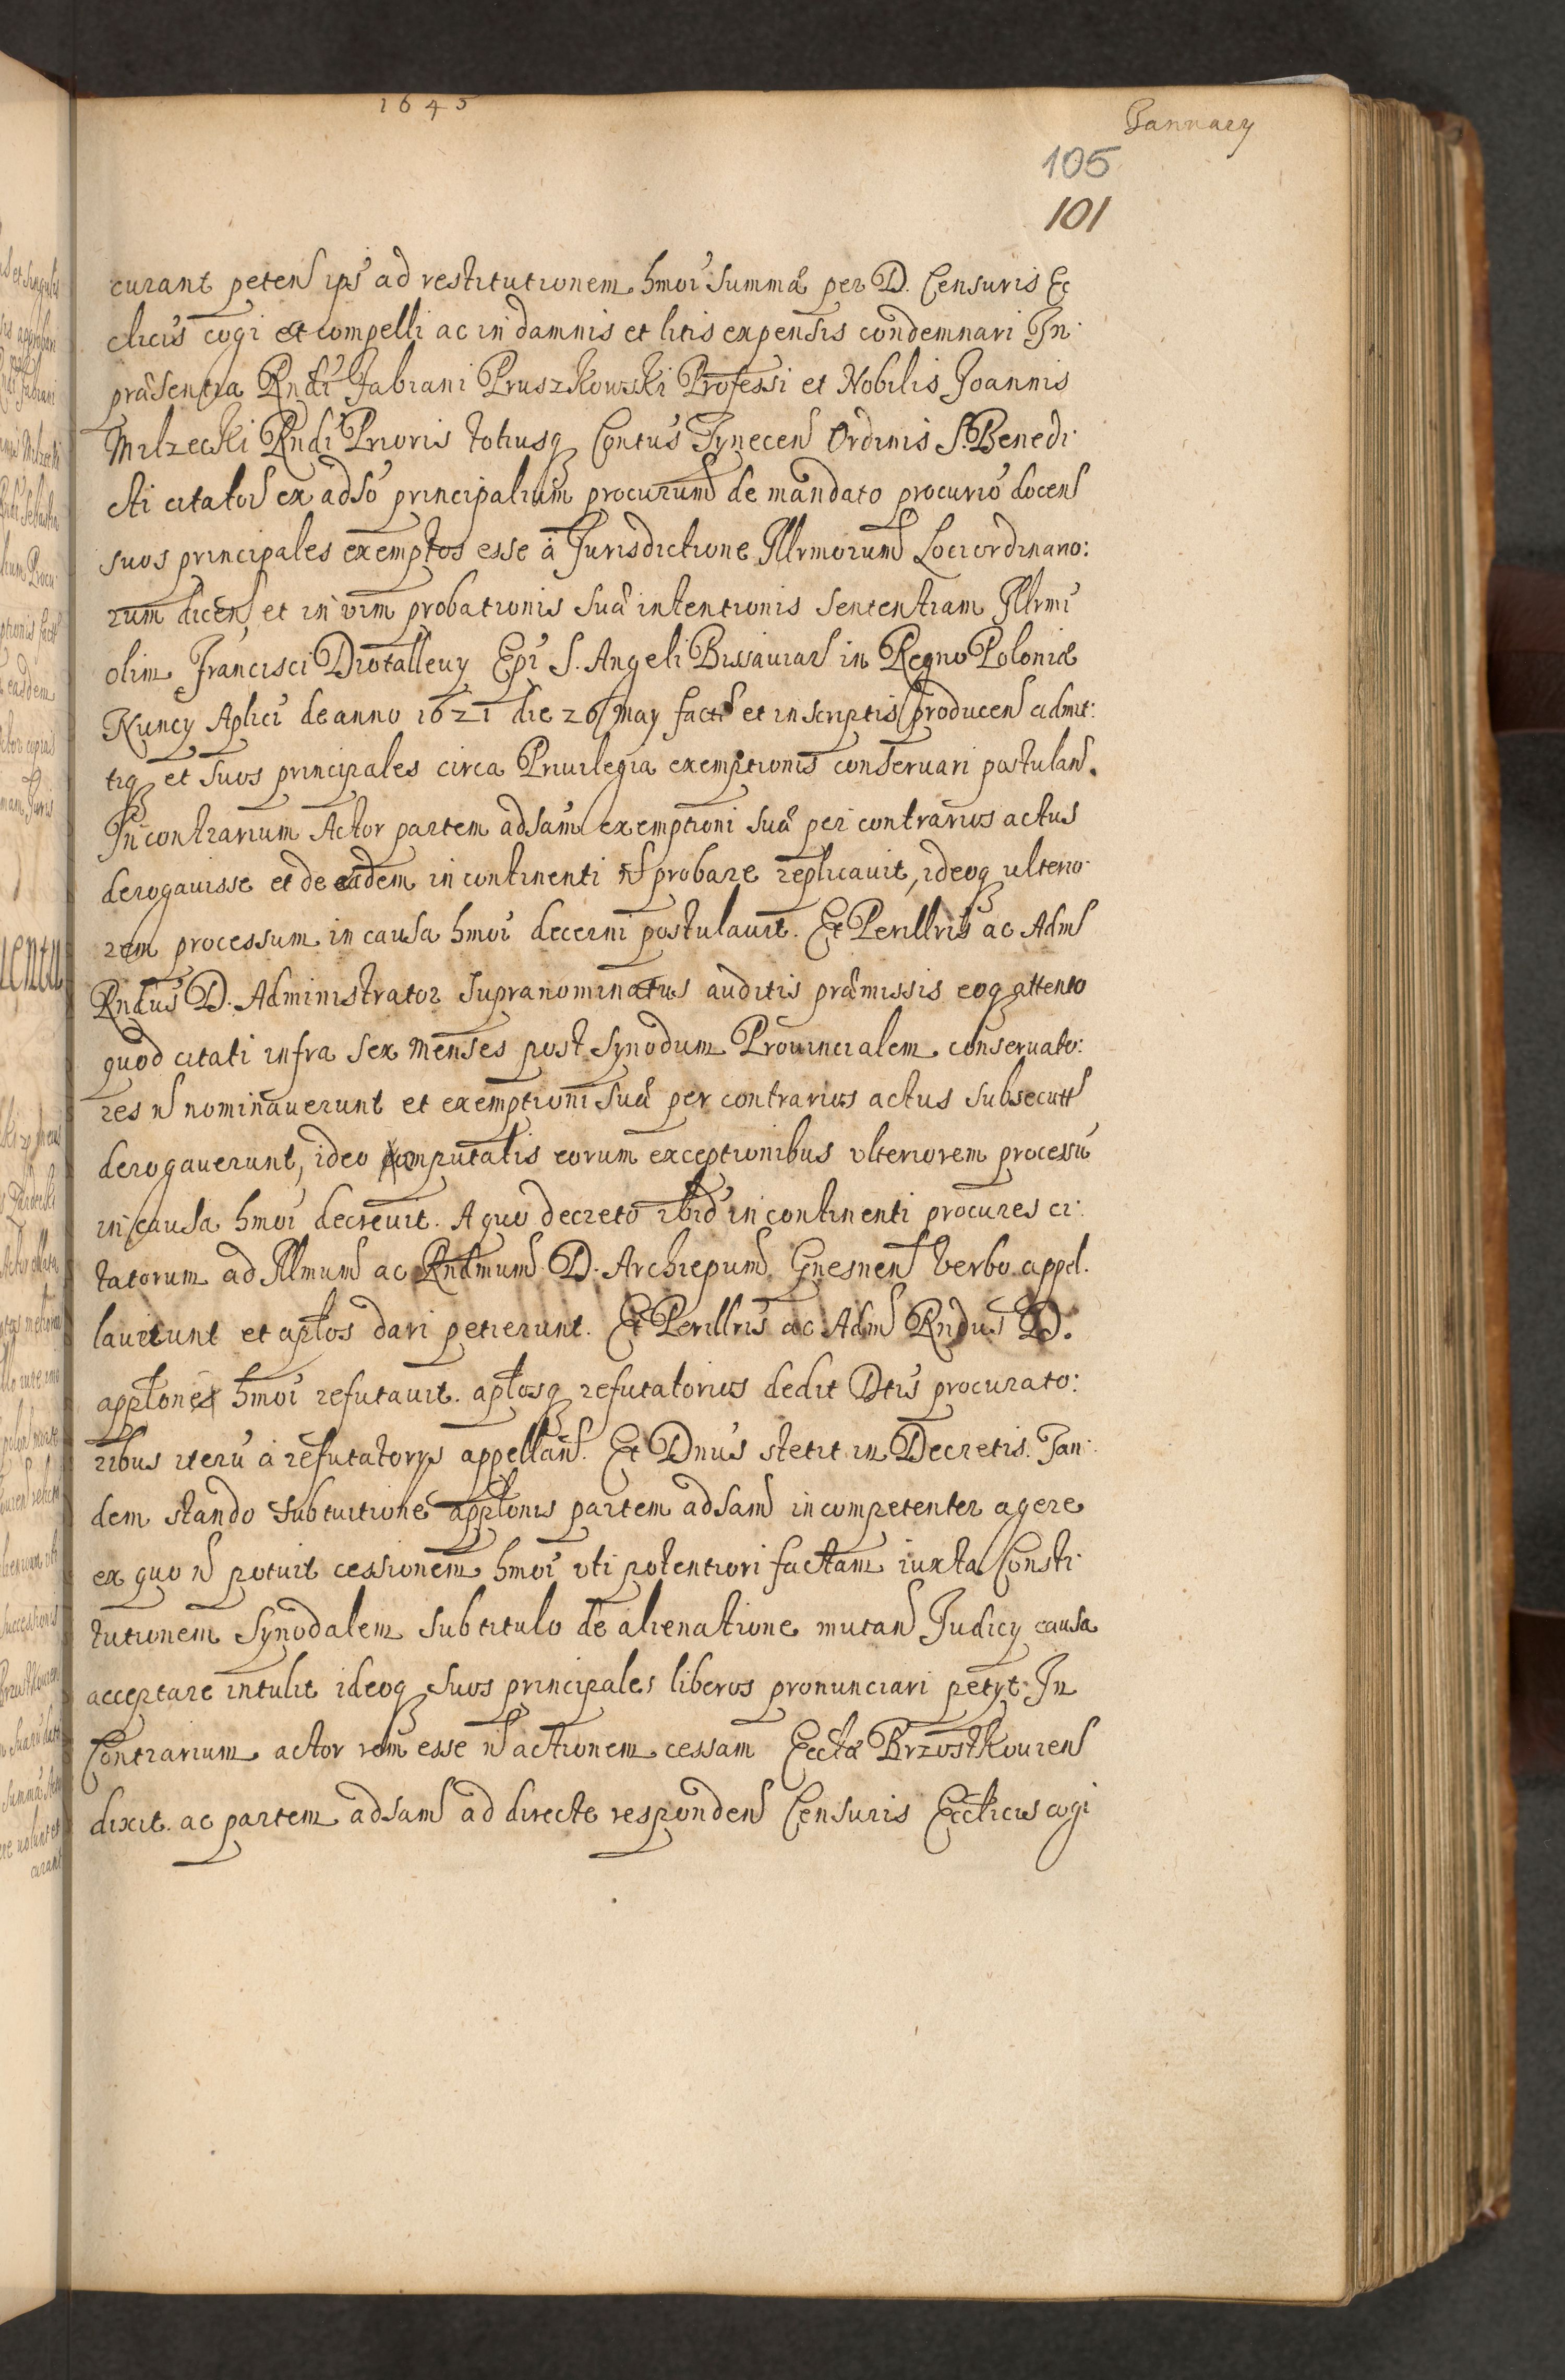 1645
January
105
101
curant petens ips ad restitutionem hmoi summæ per D. Censuris Ec
clicis cogi et compelli ac in damnis et litis expensis condemnari In
præsentia Rndi Fabiani Pruszkowski Professi et Nobilis Joannis
Milzecki Rndi Prioris totiusq Contus Tynecen Ordinis S. Benedi
cti citator ex adso principalium procurum de mandato procurio docen
suos principales exemptos esse à Jurisdictione Illrmorum Lociordinario:
rum dicen et in vim probationis suæ intentionis sententiam Illrmi
olim Francisci Diotalleuy Epi S. Angeli Bissaviar in Regno Poloniæ
Nuncy Aplici de anno 1621 die 26 May facts et in scriptis producen admit:
tiq et suos principales circa Priuilegia exemptionis conseruari postulan.
In contrarium Actor partem adsam exemptioni suæ per contrarios actus
derogauisse et de eadem in continenti n probare replicauit, ideoq ulterio
rem processum in causa hmoi decerni postulauit. Et Perillris ac Adm
Rndus D. Administrator supranominatus auditis præmissis eoq attento
quod citati infra sex menses post synodum Prouincialem conseruato:
res n nominauerunt et exemptioni suæ per contrarios actus subsecutt
derogauerunt, ideo computatis eorum exceptionibus vlteriorem processu
in causa hmoi decreuit. A quo decreto ibid in continenti procures ci:
tatorum ad Illmum ac Rndmum D. Archiepum Gnesnen verbo appel.
lauerunt et aptos dari petierunt. Et Perillris ac Adm Rndus D.
applones hmoi refutauit. aptosq refutatorios dedit Dtis procurato:
ribus iteru à refutatorys appellan. Et Dnus stetit in Decretis. Tan
dem stando sub tuitione applonis partem adsam incompetenter agere
ex quo n potuit cessionem hmoi vti potentiori factam iuxta Consti
tutionem Synodalem sub titulo de alienatione mutan Judicy causa
acceptare intulit ideoq suos principales liberos pronunciari petyt. In
Contrarium actor rem esse n actionem cessam Ecctæ Brzostkouien
dixit. ac partem adsam ad directe responden Censuris Ecclicis cogi